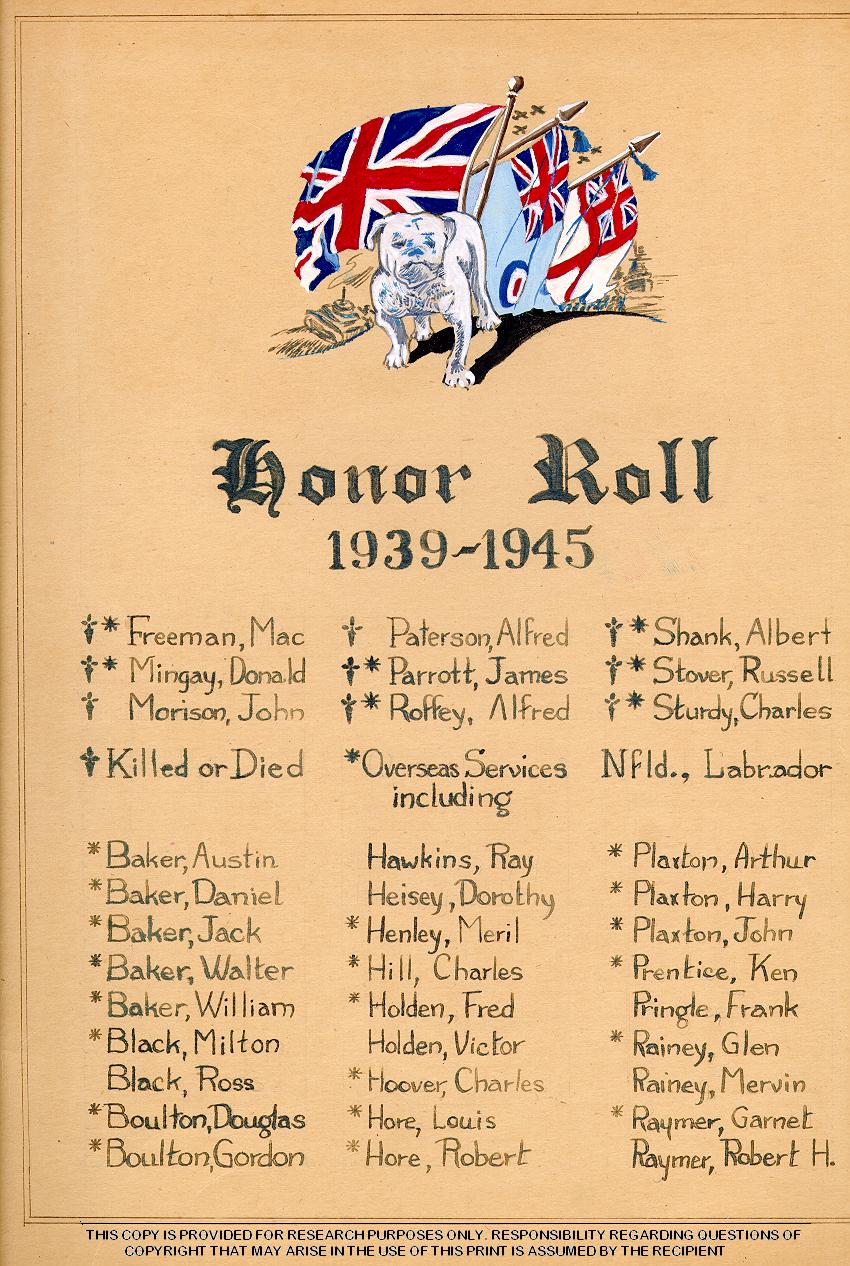 Honor Roll
1939-1945
†* Freeman, Mac † Paterson, Alfred †* Shank, Albert
†* Mingay, Donald †* Parrott, James †* Stover, Russell
† Morison, John †* Roffey, Alfred †* Sturdy, Charles
† Killed or Died *Overseas Services Nfld., Labrador
including
*Baker, Austin Hawkins, Ray * Plaxton, Arthur
*Baker, Daniel Heisey, Dorothy * Plaxton, Harry
*Baker, Jack * Henley, Meril * Plaxton, John
*Baker, Walter * Hill, Charles * Prentice, Ken
*Baker, William * Holden, Fred Pringle, Frank
*Black, Milton Holden, Victor * Rainey, Glen
Black, Ross * Hoover, Charles Rainey, Mervin
*Boulton, Douglas * Hore, Louis * Raymer, Garnet
*Boulton, Gordon * Hore, Robert Raymer, Robert H.
THIS COPY IS PROVIDED FOR RESEARCH PURPOSES ONLY. RESPONSIBILITY REGARDING QUESTIONS OF
COPYRIGHT THAT MAY ARISE IN THE USE OF THIS PRINT IS ASSUMED BY THE RECIPIENT